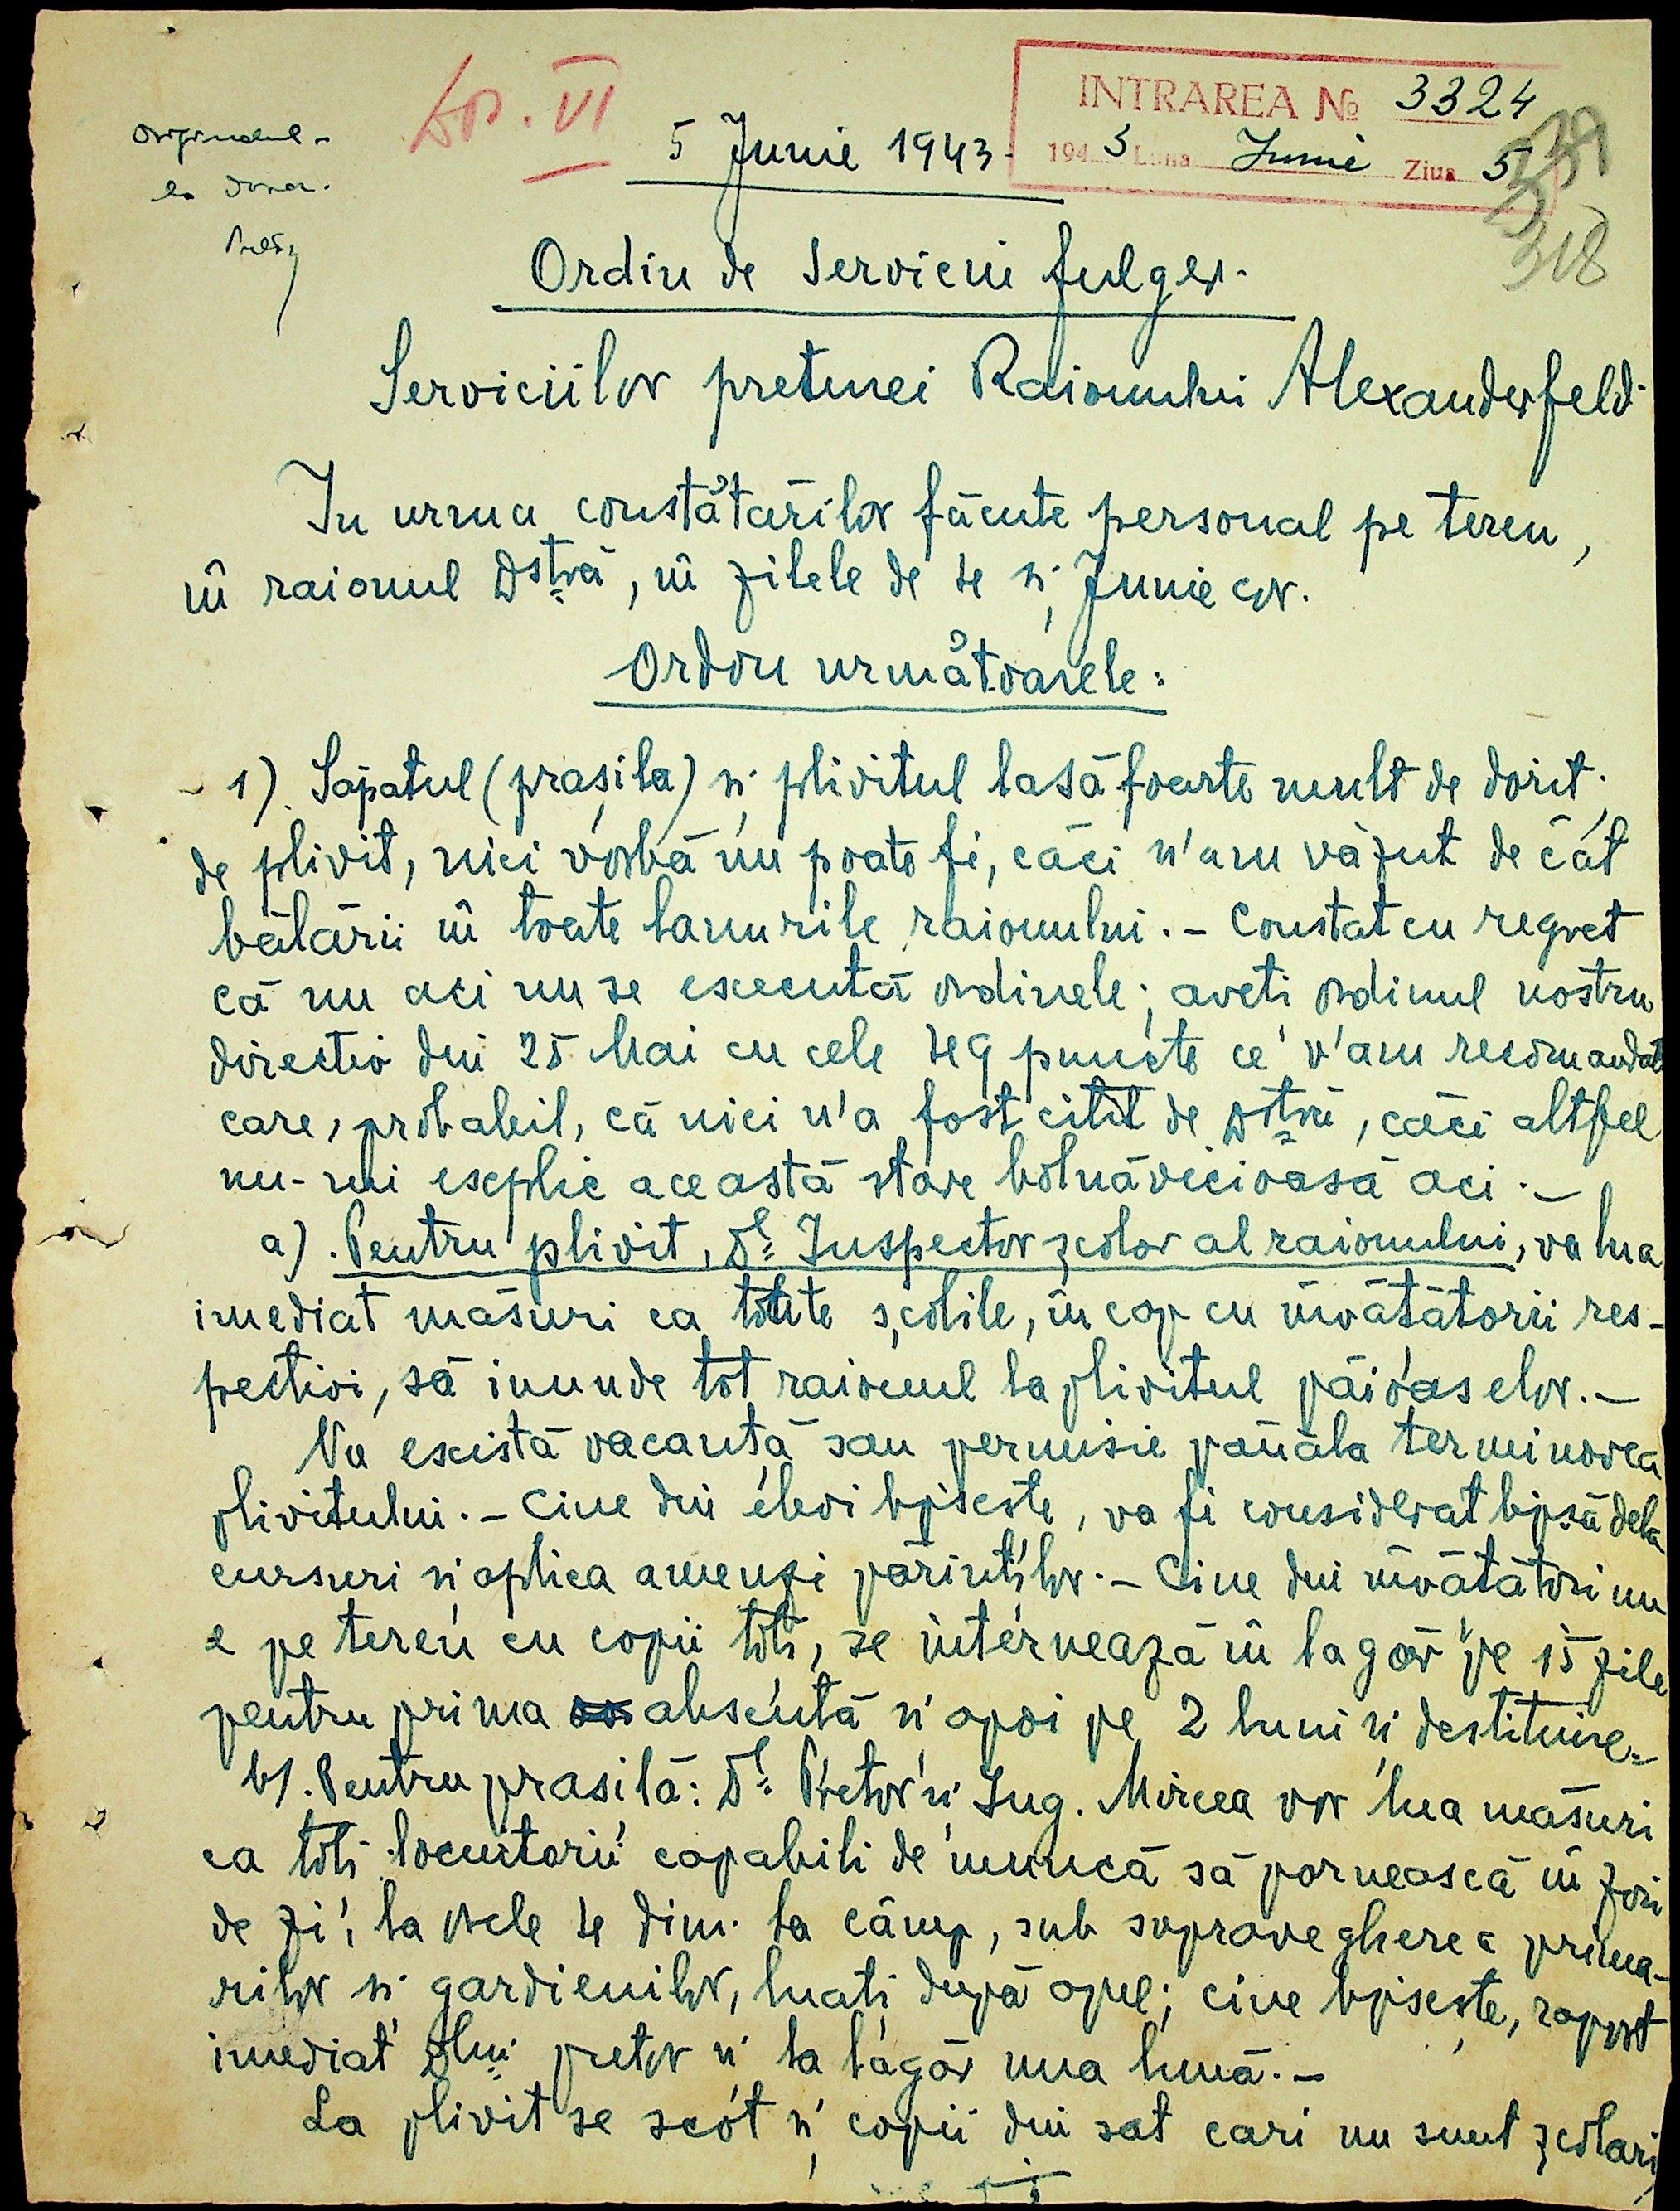 Originalul
la dosar.
Dos. VI
5 Junie 1943.
INTRAREA № 3324
1943 Luna Junie Ziua 5
339
318
Ordin de serviciu fulger.
Serviciilor preturei Raionului Alexanderfeld.
In urma constatărilor făcute personal pe teren,
în raionul Dstră, în zilele de 4 și Junie cor.
Ordon următoarele:
1) Săpatul (prașila) și plivitul lasă foarte mult de dorit;
de plivit, nici vorbă nu poate fi, căci n'am văzut de cât
bălării în toate lanurile raionului. - Constat cu regret
că nu aci nu se execută ordinele; aveți ordinul nostru
directiv din 25 Mai cu cele 49 puncte ce v'am recomandat
care, probabil, că nici n'a fost citit de Dstră, căci altfel
nu-mi explic această stare bolnăvicioasă aci. -
a). Pentru plivit, Dl. Inspector școlar al raionului, va lua
imediat măsuri ca toate școlile, în cap cu învățătorii res-
pectivi, să inunde tot raionul la plivitul păioaselor. -
Nu există vacanță sau permisie până la terminarea
plivitului. - Cine din elevi lipsește, va fi considerat lipsă dela
cursuri și aplica amenzi părinților. - Cine din învățători nu
e pe teren cu copii toți, se internează în lagăr pe 15 zile
pentru prima absență și apoi pe 2 luni și destituire. -
b). Pentru prașilă: Dl. Pretor și Ing. Mircea vor lua măsuri
ca toți locuitorii capabili de muncă să pornească în zori
de zi, la orele 4 dim. la câmp, sub supravegherea prima-
rilor și gardienilor, luați după apel; cine lipsește, raport
imediat Dlui pretor și la lagăr una lună. -
La plivit se scot și copii din sat cari nu sunt școlari